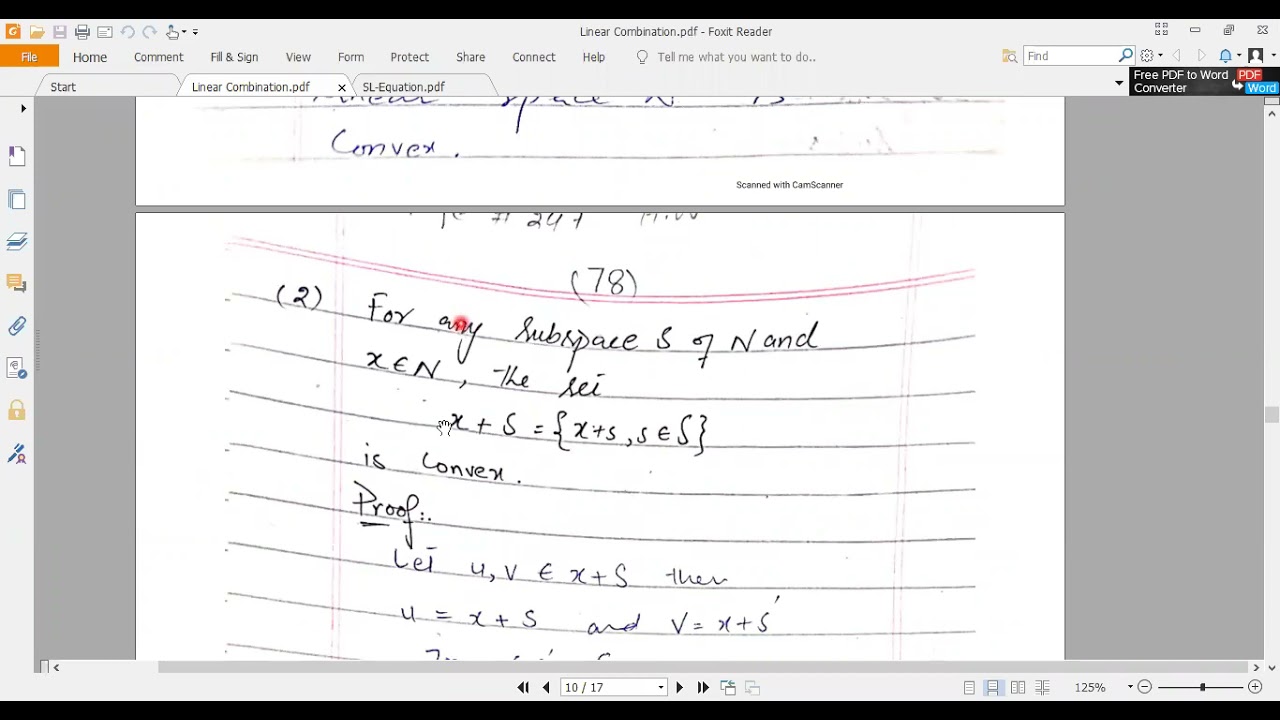 Linear Combination.pdf - Foxit Reader
File Home Comment Fill & Sign View Form Protect Share Connect Help Tell me what you want to do.. Find
Start Linear Combination.pdf SL-Equation.pdf
Free PDF to Word PDF
Converter Word
Space N is
Convex.
Scanned with CamScanner
(78)
(2) For any Subspace S of N and
x ∈ N, the set
x + S = {x+s, s ∈ S}
is Convex.
Proof:.
Let u, v ∈ x + S then
u = x + S and v = x + s'
10 / 17
125%